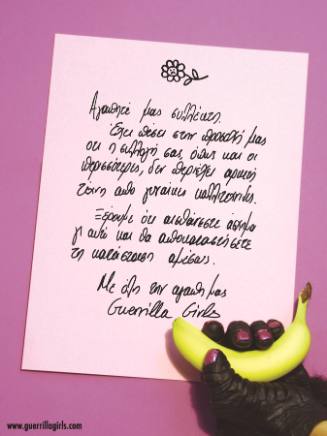 Αγαπητέ μας συλλέκτη,
Έχει πέσει στην προσοχή μας
ότι η συλλογή σας, όπως και οι
περισσότερες, δεν περιέχει αρκετή
τέχνη από γυναίκες καλλιτέχνιδες.
Ξέρουμε ότι αισθάνεστε άσχημα
γι αυτό και θα αποκαταστήσετε
τη κατάσταση αμέσως.
Με όλη την αγάπη μας
Guerrilla Girls
www.guerrillagirls.com